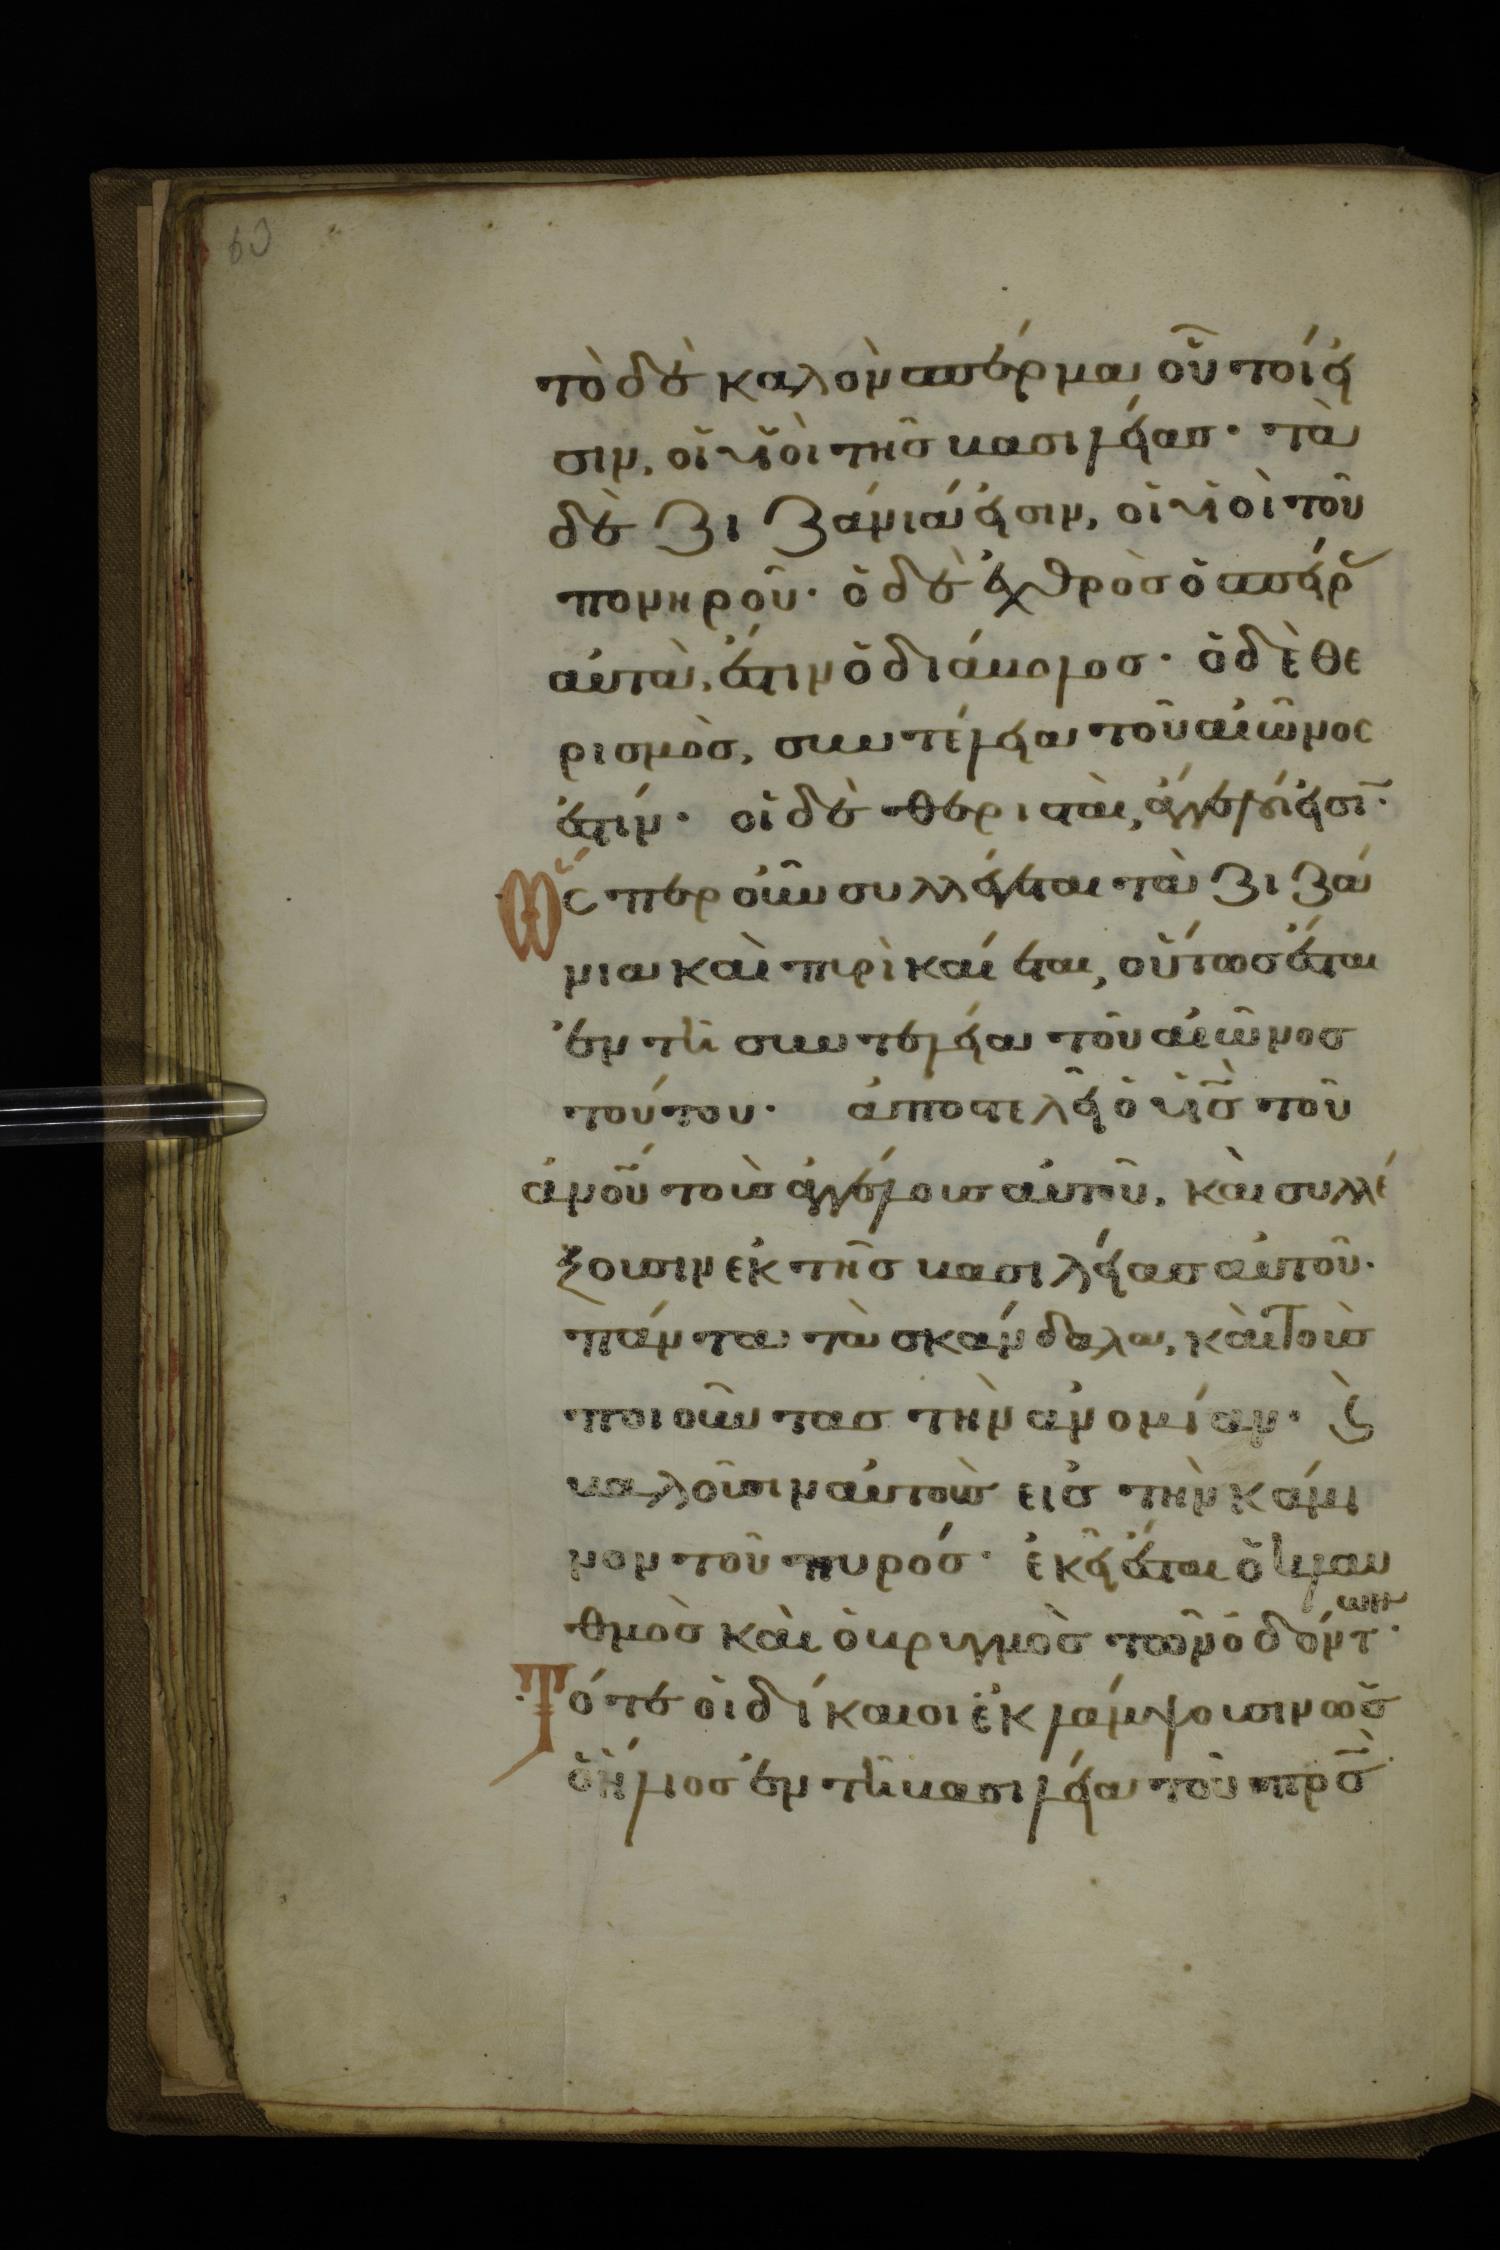 63
τὸ δὲ καλὸν σπέρμα οὗτοί εἰ
σιν, οἱ υἱοὶ τῆς βασιλείας· τὰ
δὲ ζιζάνιά εἰσιν, οἱ υἱοὶ τοῦ
πονηροῦ· ὁ δὲ ἐχθρὸς ὁ σπείρ
αὐτὰ, ἐστιν ὁ διάβολος· ὁ δὲ θε
ρισμὸς, συντέλεια τοῦ αἰῶνος
ἐστίν· οἱ δὲ θερισταὶ, ἄγγελοί εἰσῖ·
Ὥσπερ οὖν συλλέγεται τὰ ζιζά
νια καὶ πυρὶ καίεται, οὕτως ἔσται
ἐν τῆ συντελεία τοῦ αἰῶνος
τούτου· ἀποστελεῖ ὁ υἱς τοῦ
ἀνοῦ τοὺς ἀγγέλους αὐτοῦ, καὶ συλλέ
ξουσιν ἐκ τῆς βασιλείας αὐτοῦ·
πάντα τὰ σκάνδαλα, καὶ τοὺς
ποιοῦντας τὴν ἀνομίαν· ϗ
βαλοῦσιν αὐτοὺς εἰς τὴν κάμι
νον τοῦ πυρός· ἐκεῖ ἔσται ὁ κλαυ
θμὸς καὶ ὁ βρυγμὸς τῶν ὀδόντων·
Τότε οἱ δίκαιοι ἐκλάμψουσιν ὡς
ὁ ἥλιος ἐν τῆ βασιλεία τοῦ πρς